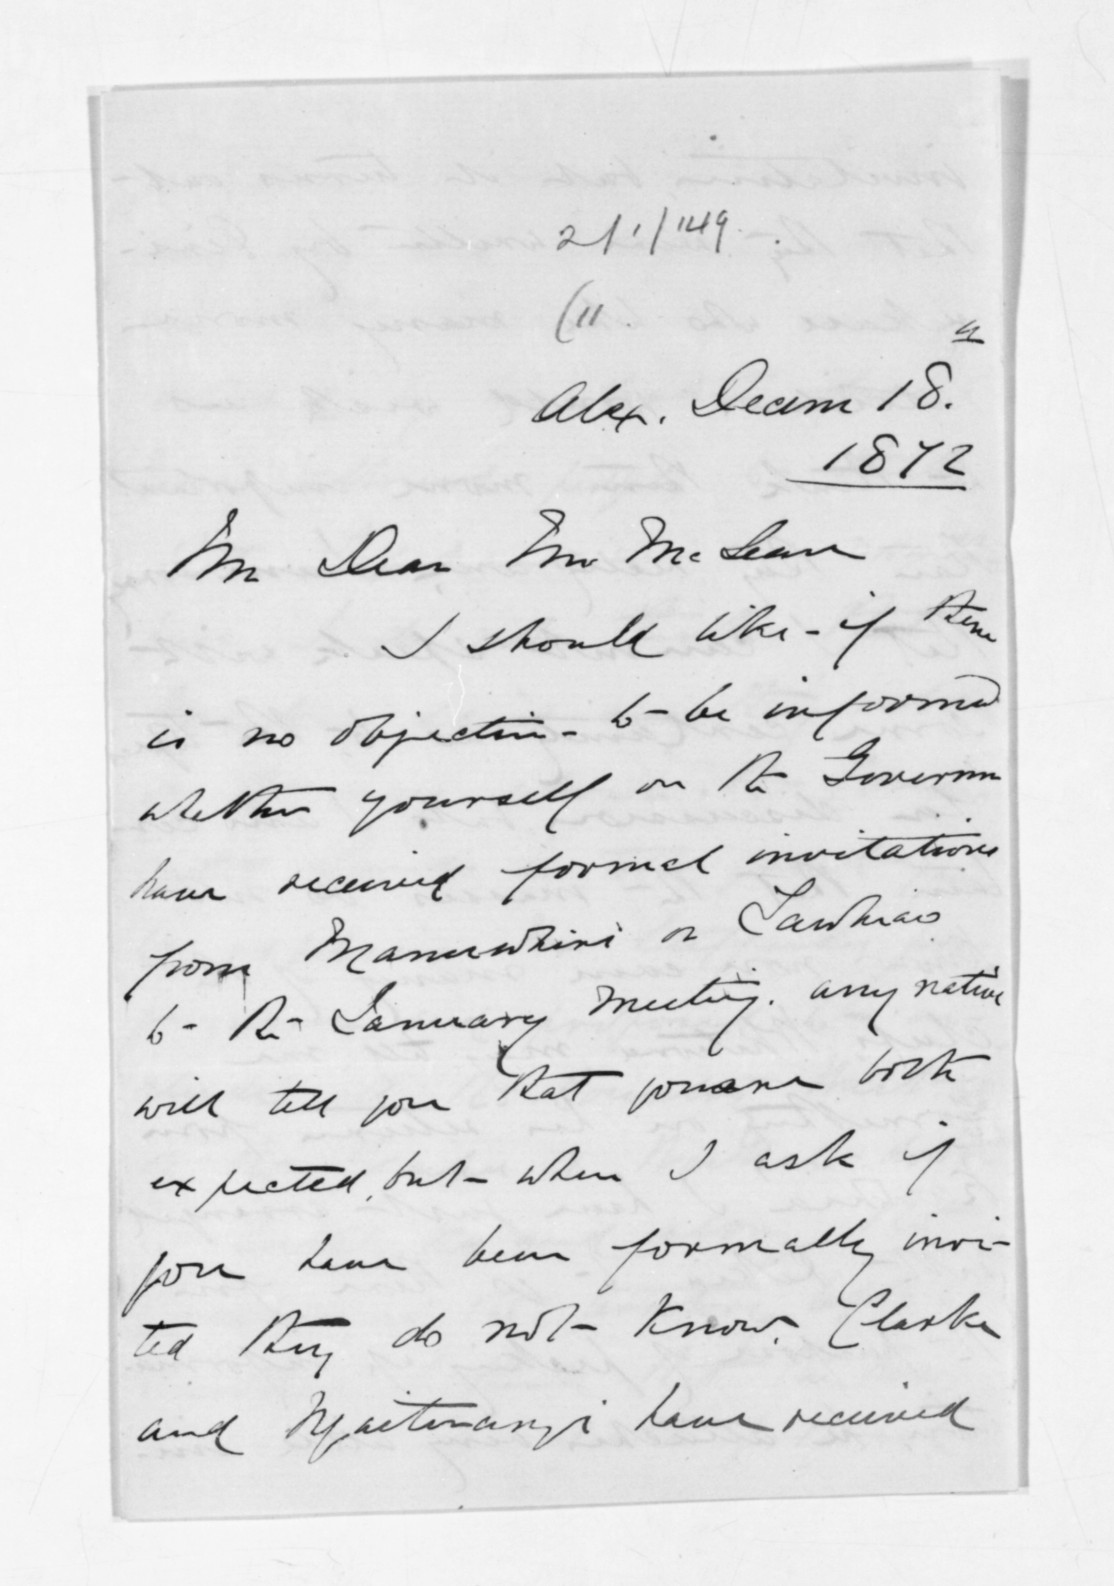 21/1/149
(11
Alex. Decem 18.th
1872
My Dear Mr McLean
I should like - if there
is no objection - to be informed
whether yourself or the Governm
have received formal invitations
from Manuwhiri or Tawhiao
to the January meeting. any native
will tell you that you are both
expected, but when I ask if
you have been formally invi-
ted they do not know. Clarke
and have received